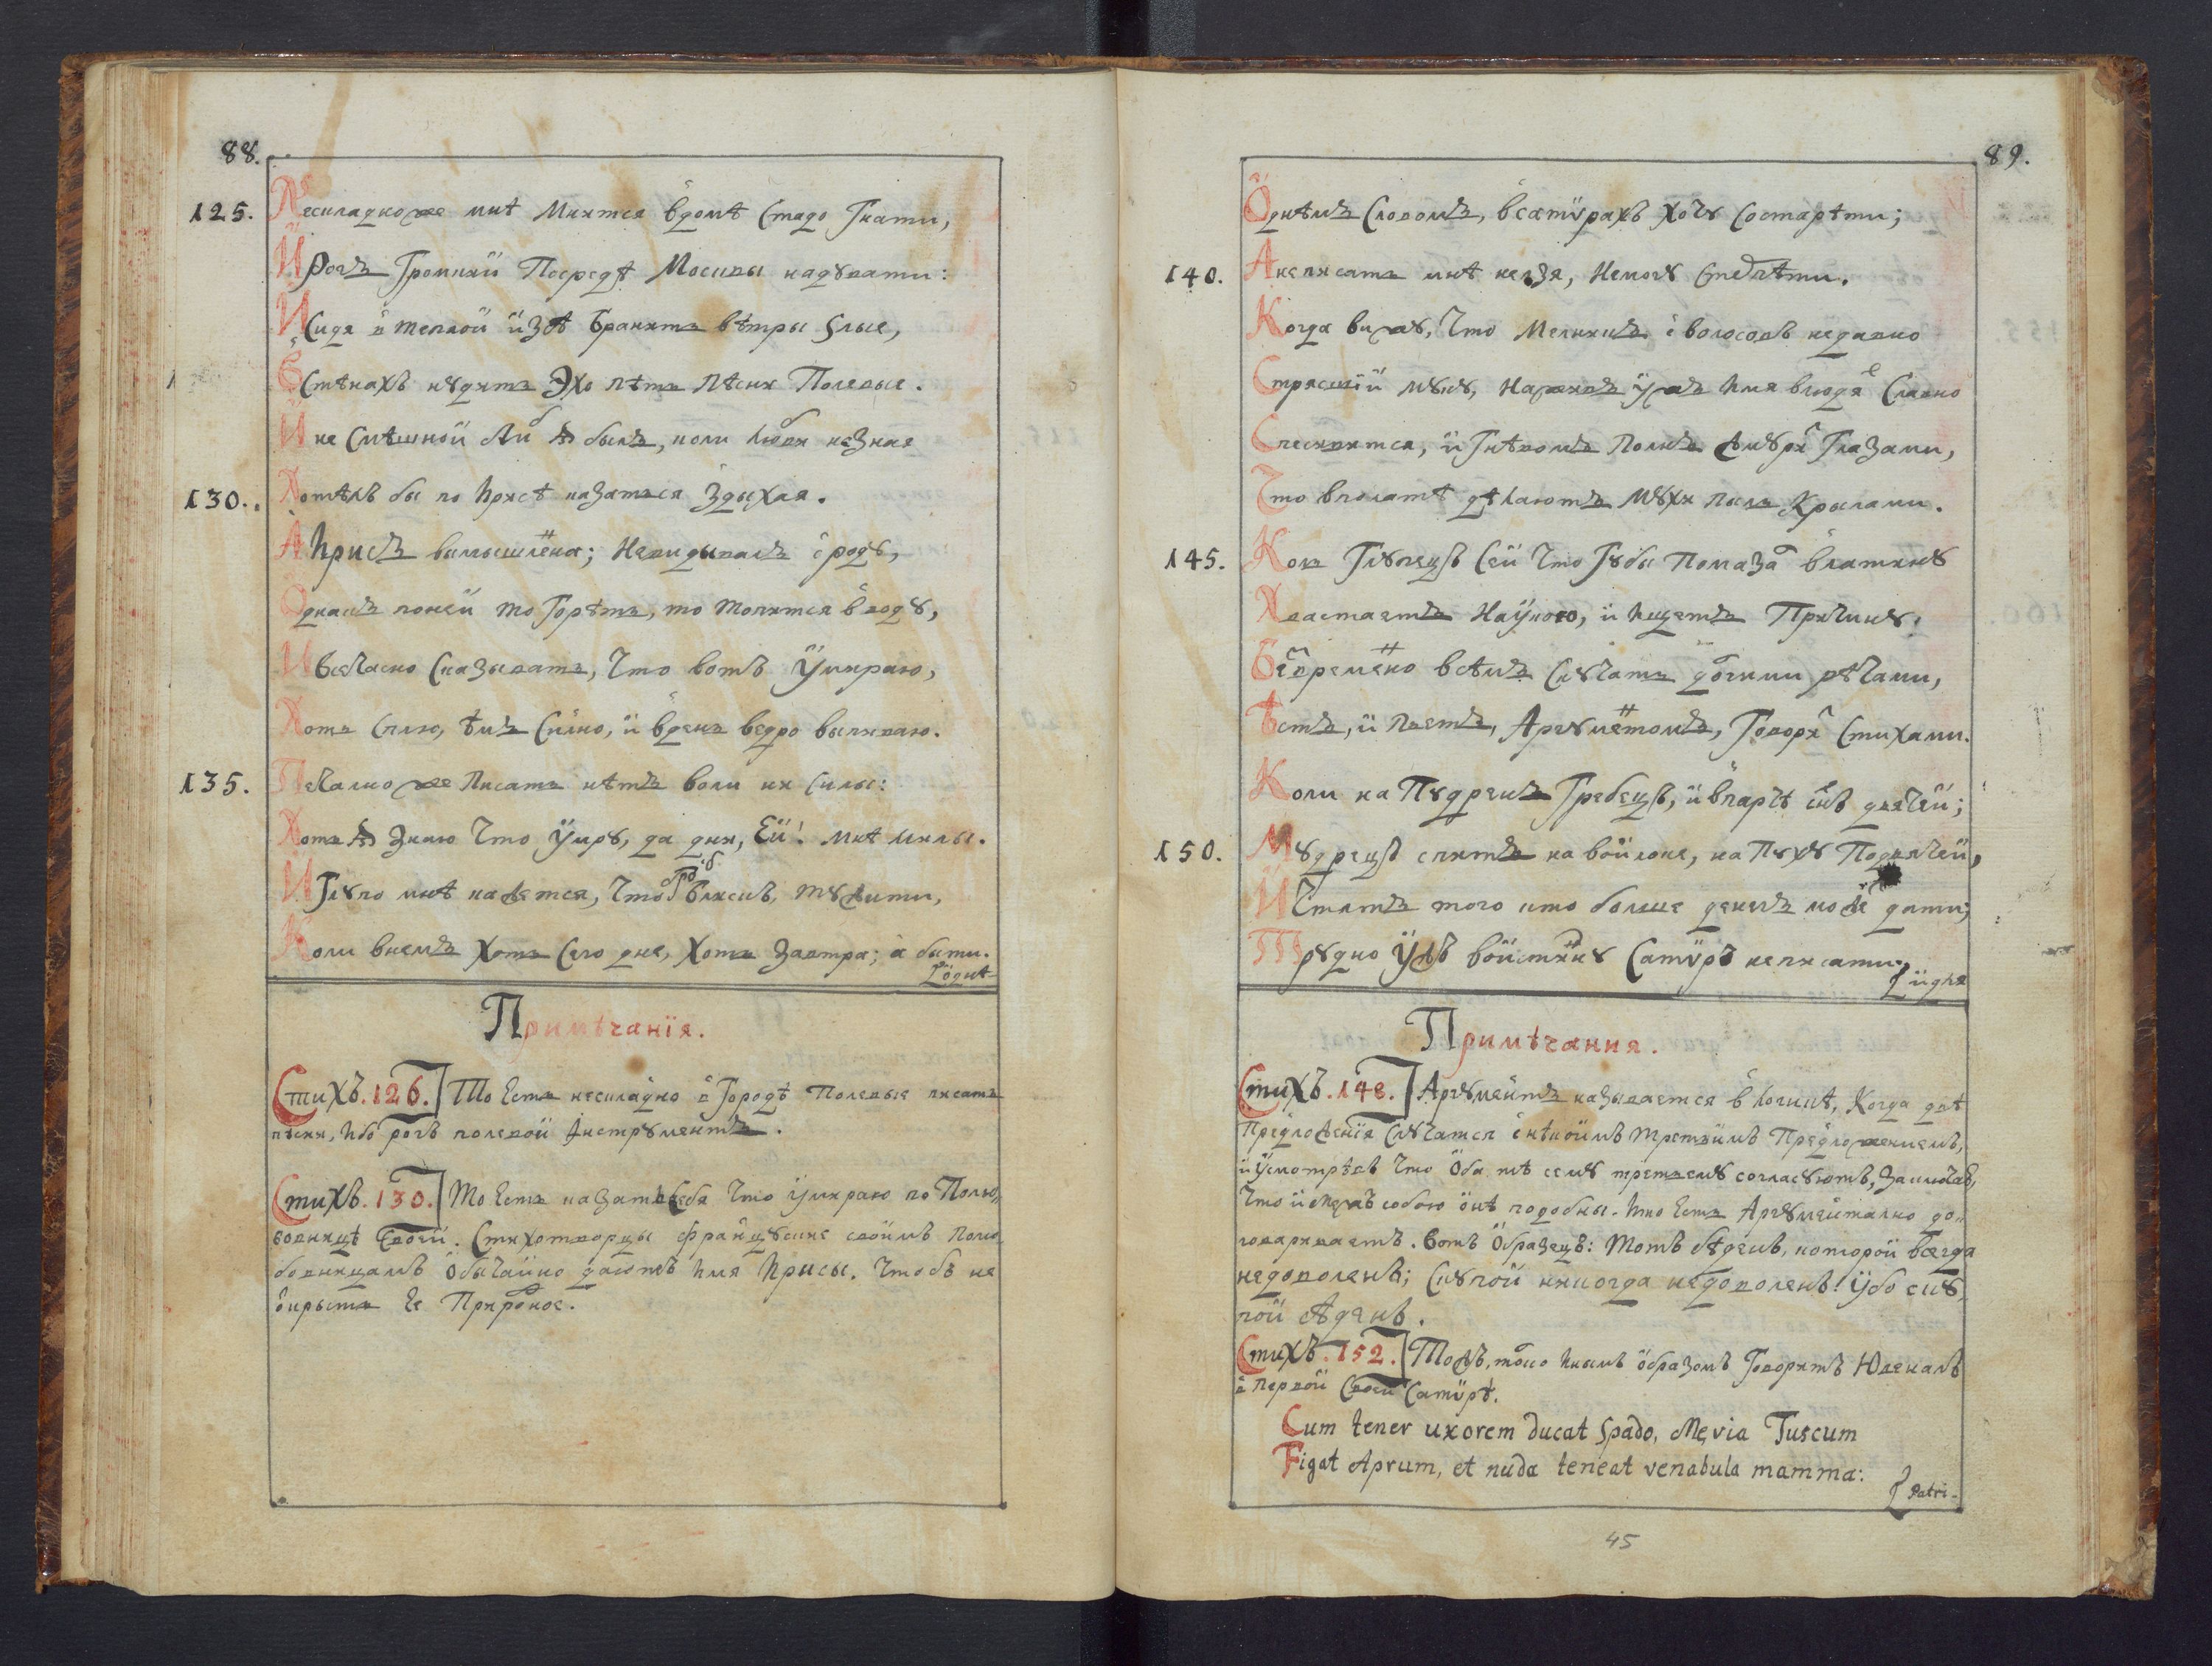 88.
125. Нескладно же мнѣ мнится в домѣ стадо гнати,
И рогъ громкий посредѣ Москвы надꙋвати:
И сидя в теплой избѣ бранить вѣтры ѕлые,
В стѣнахъ нꙋдить эхо пѣть пѣсни полевые.
И не смѣшной ли б я былъ, коли любви не зная
130. Хотѣлъ бы по Ирисѣ казаться здыхая.
А Ирисъ вымышлена; не видывалъ с родꙋ,
Однакъ по ней то горѣть, то топится в водꙋ,
И всечасно сказывать, что вотъ умираю,
Хоть сплю, ѣмъ силно, и в день ведро выпиваю.
135. Печално же писать нѣтъ воли ни силы:
Хоть я знаю что умрꙋ, да дни, Ей! мнѣ милы.
И глꙋпо мнѣ кажется, что гроб близкъ, тꙋжити,
Коли в немъ хоть сего дне, хоть завтра; а быти.
Однѣ
Примѣчанїя.
Стихъ. 126.] То есть нескладно в городѣ полевые писать
пѣсни, ибо рогъ полевой инстрꙋментъ.
Стихъ. 130.] То есть казать себя что умираю по полю
бовницѣ своей. Стихотворцы францꙋские своимъ полю
бовницамъ обычайно даютъ имя Ирисы. Чтобъ не
скрыть ее природное.
89.
Однѣмъ словомъ, в сатѵрахъ хочꙋ состарѣти;
140. А не писать мнѣ нелзя, не могꙋ стерпѣти.
Когда вижꙋ, что Мелникъ с волосовъ недавно
Стрясший мꙋкꙋ, наживъ ужъ имя в людях славно
Спесивится, и гнѣвомъ полнъ жмꙋрит глазами,
Что в полатѣ дѣлаютъ мꙋхи пыль крылами.
145. Коль глꙋпецъ сей что гꙋбы помазал в латинꙋ
Хвастаетъ наукою, и ищетъ причинꙋ:
Безвременно всѣмъ скꙋчать долгими рѣчами,
Ѣстъ, и пьетъ, аргꙋментомъ, говорит стихами.
Коли на пꙋдренъ гребецъ, и в парчѣ снъ дьячей;
150. Мꙋдрецъ спитъ на войлоке, на пꙋхꙋ подьячей,
И чтятъ того кто болше денегъ может дати;
Трꙋдно ужъ воистиннꙋ сатѵръ не писати.
Примѣчания.
Стихъ. 148.] Аргꙋментъ называется в логикѣ, когда двѣ
предложенїя слꙋчатся с нѣкоимъ третьимъ предложениемъ,
и усмотрѣвъ что оба тѣ семꙋ третьемꙋ согласꙋютъ, заключаю,
что и межъ собою онѣ подобны. Кто есть аргꙋментално до
говариваетъ. Вотъ образецъ: тотъ бѣденъ, которой всегда
недоволенъ; скꙋпой никогда недоволенъ: убо скꙋ
пой бѣденъ.
Стихъ. 152.] Тожъ, токмо инымъ образомъ говоритъ Ювеналъ
в первой своей сатѵрѣ.
Cum tener uxorem ducat spado, Mevia Tuscum
Figat Aprum, et nuda teneat venabula mamma:
Patri-
45